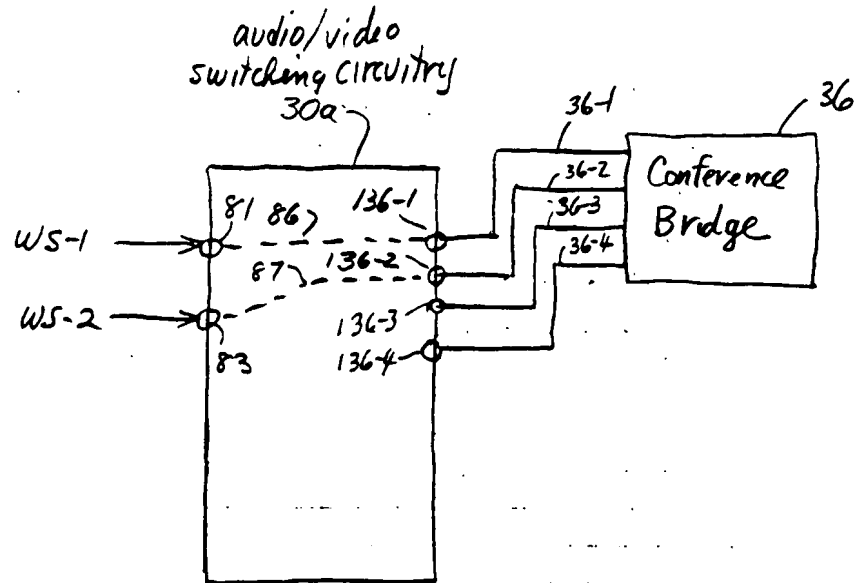 audio/video
switching circuitry
30a
36-1
36
36-2
Conference
36-3
Bridge
36-4
WS-1
81
86
136-1
87
136-2
WS-2
136-3
83
136-4